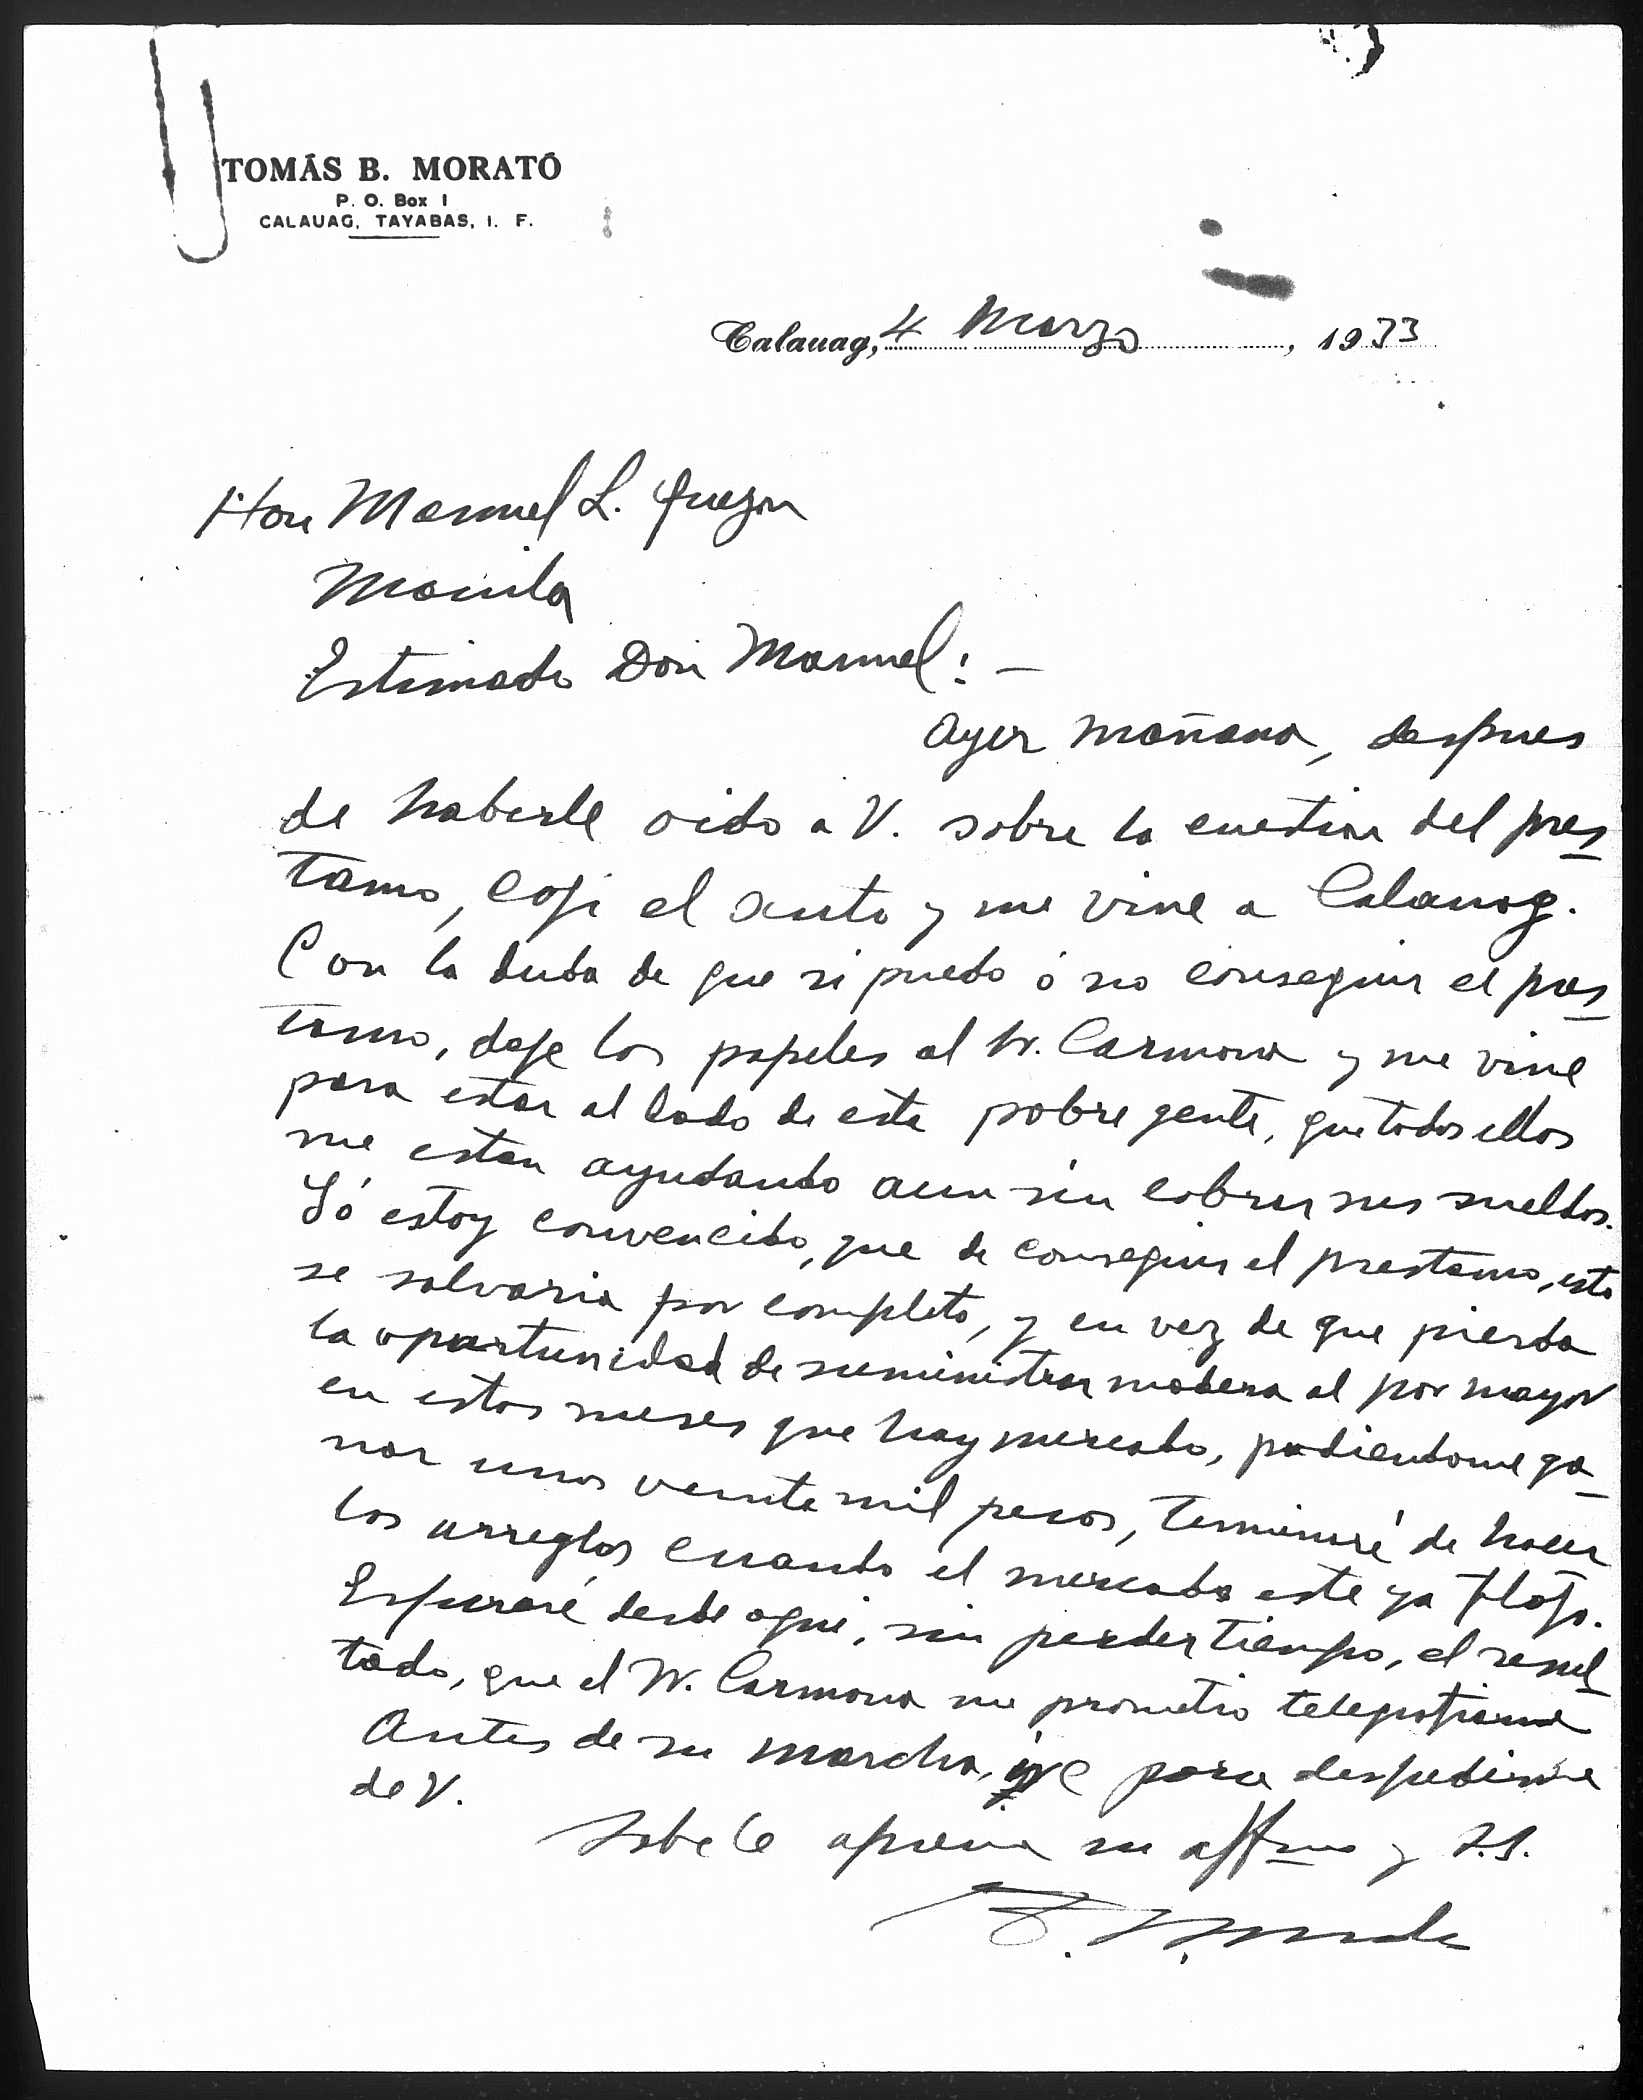 TOMÁS B. MORATÓ
P. O. Box 1
CALAUAG, TAYABAS, I. F.
Calauag, 4 Marzo, 1933
Hon Manuel L. Quezon
Manila
Estimado Don Manuel: —
Ayer mañana, despues
de haberle oido a V. sobre la cuestion del pres
tamo, coji el auto y me vine a Calauag.
Con la duda de que si puedo ó no conseguir el pres
tamo, deje los papeles al Sr. Carmona y me vine
para estar al lado de esta pobre gente, que todos ellos
me estan ayudando aun sin cobrar sus sueldos.
Yó estoy convencido, que de conseguir el prestamo, esto
se salvaria por completo, y en vez de que pierda
la oportunidad de suministrar madera al por mayor
en estos meses que hay mercado, pudiendome ga-
nar unos veinte mil pesos, terminaré de hacer
los arreglos cuando el mercado este ya flojo.
Esperaré desde aqui, sin perder tiempo, el resul
tado, que el Sr. Carmona me prometio telegrafiarme
Antes de su marcha, iré para despedirme
de V.
Sabe le aprecia su affmo y S.S.
T. Morato